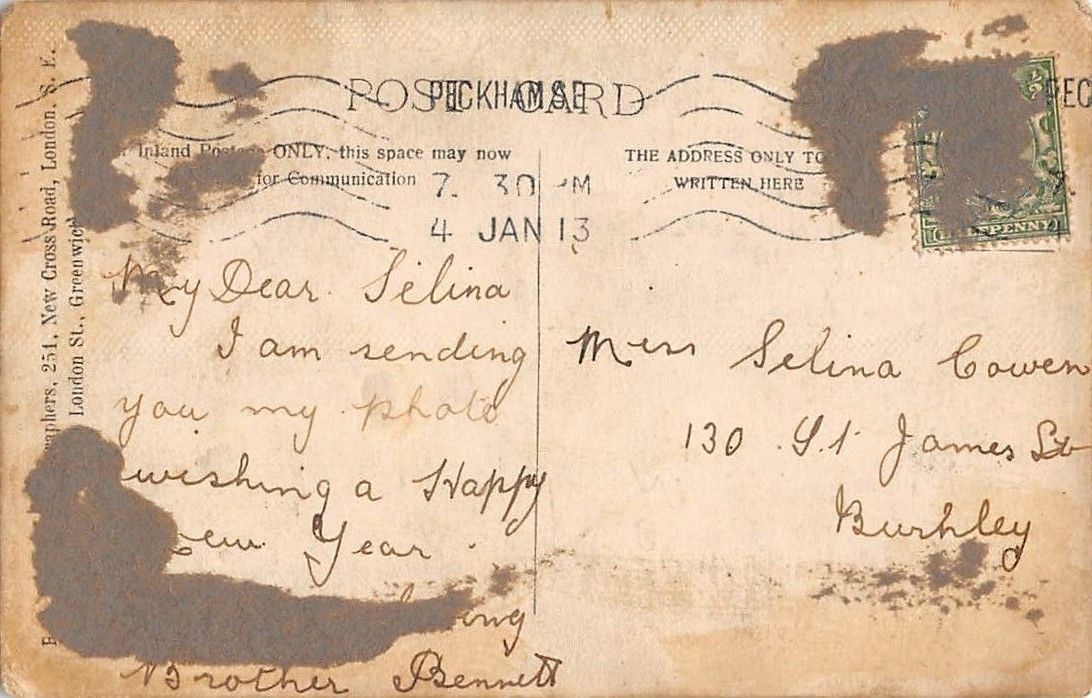 POST CARD
PECKHAM S.E
PEC
Inland Postage ONLY, this space may now
for Communication
THE ADDRESS ONLY TO
WRITTEN HERE
7. 30 PM
4 JAN 13
HALFPENNY
My Dear Selina
I am sending
you my photo
wishing a Happy
New Year.
Brother Bennett
Miss Selina Cowen
130 St James St
Burhley
251, New Cross Road, London. S. E.
London St., Greenwich